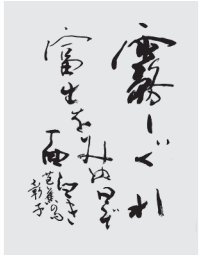 霧しぐれ
富士をみぬ日ぞ
面白き
芭蕉の句
彰子